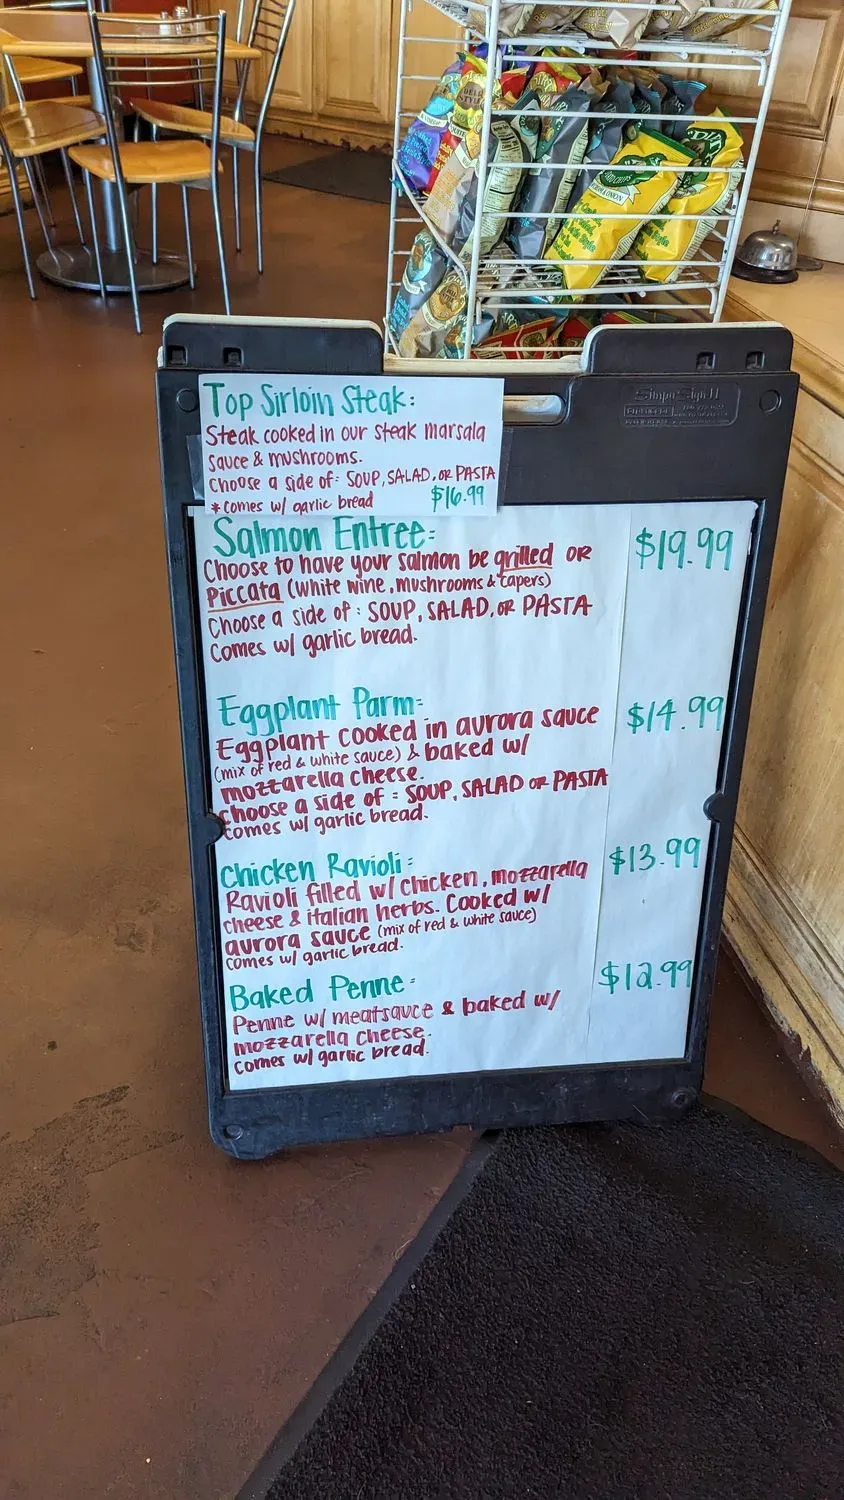 Top Sirloin Steak:
Steak cooked in our steak marsala
sauce & mushrooms.
Choose a side of: SOUP, SALAD, OR PASTA
*comes w/ garlic bread $16.99
Salmon Entree: $19.99
Choose to have your salmon be grilled OR
Piccata (white wine, mushrooms & capers)
Choose a side of: SOUP, SALAD, OR PASTA
Comes w/ garlic bread.
Eggplant Parm: $14.99
Eggplant cooked in aurora sauce
(mix of red & white sauce) & baked w/
mozzarella cheese.
choose a side of: SOUP, SALAD OR PASTA
comes w/ garlic bread.
Chicken Ravioli: $13.99
Ravioli filled w/ chicken, mozzarella
cheese & italian herbs. Cooked w/
aurora sauce (mix of red & white sauce)
comes w/ garlic bread.
Baked Penne: $12.99
Penne w/ meatsauce & baked w/
mozzarella cheese.
comes w/ garlic bread.